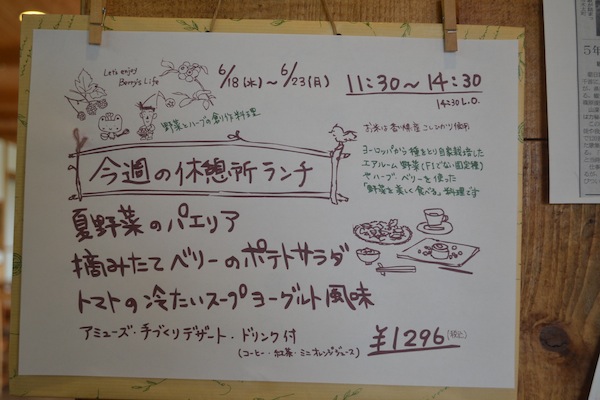 Let's enjoy
Berry's Life
6/18(水)～6/23(月)
11:30～14:30
14:30 L.O.
野菜とハーブの創作料理
お米は香川県産こしひかり使用
今週の休憩所ランチ
ヨーロッパから種をとり自家栽培した
エアルーム野菜(F1でない固定種)
やハーブ、ベリーを使った
「野菜を美しく食べる」料理です
夏野菜のパエリア
摘みたてベリーのポテトサラダ
トマトの冷たいスープヨーグルト風味
アミューズ・手づくりデザート・ドリンク付
(コーヒー・紅茶・ミニオレンジジュース)
¥1296(税込)